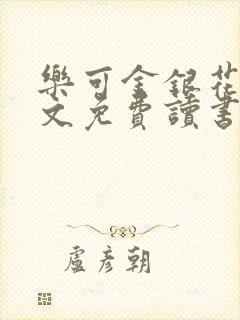 樂可金銀花
文免費讀書
盧彥朝